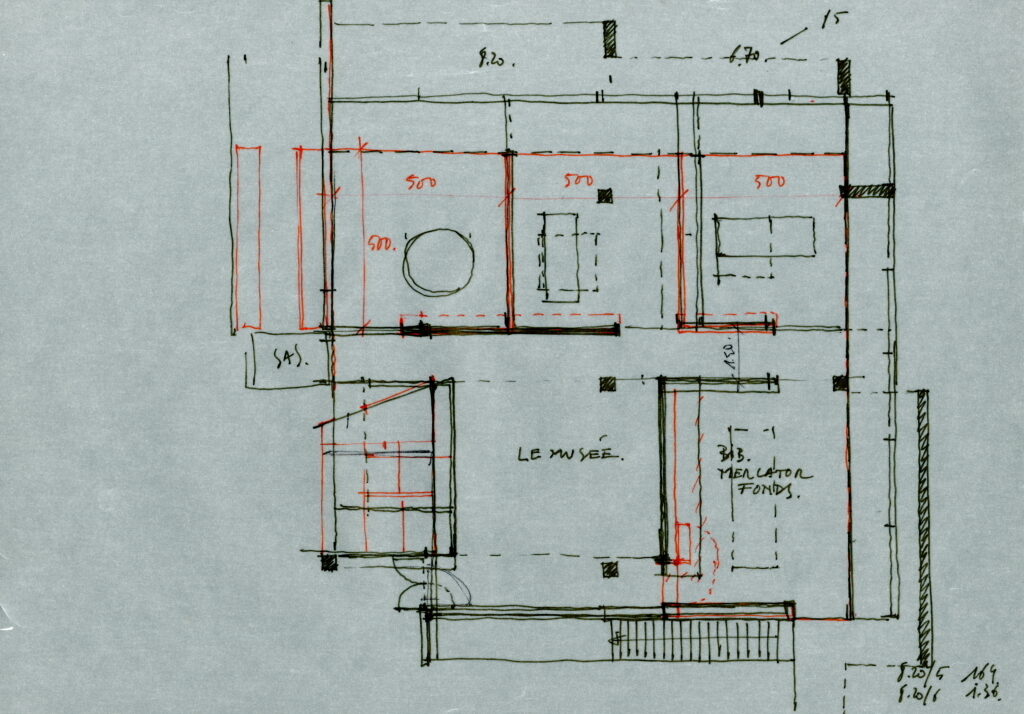 15
8.20.
6.70
500
500
500
500.
SAS.
1.50.
LE MUSÉE.
BIB.
MERCATOR
FONDS.
8.20/5 164
8.20/6 1.36.